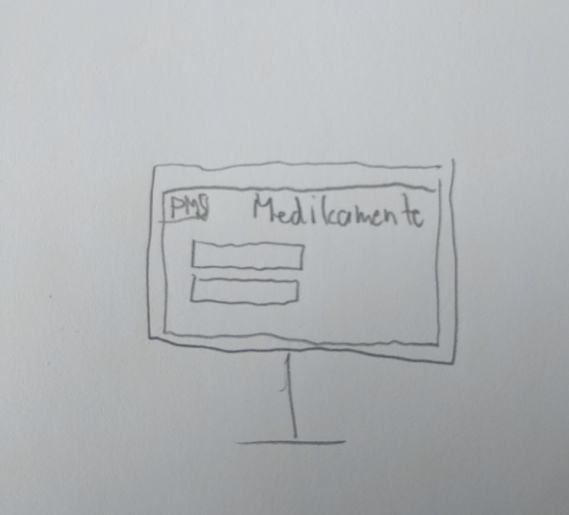 PMS Medikamente